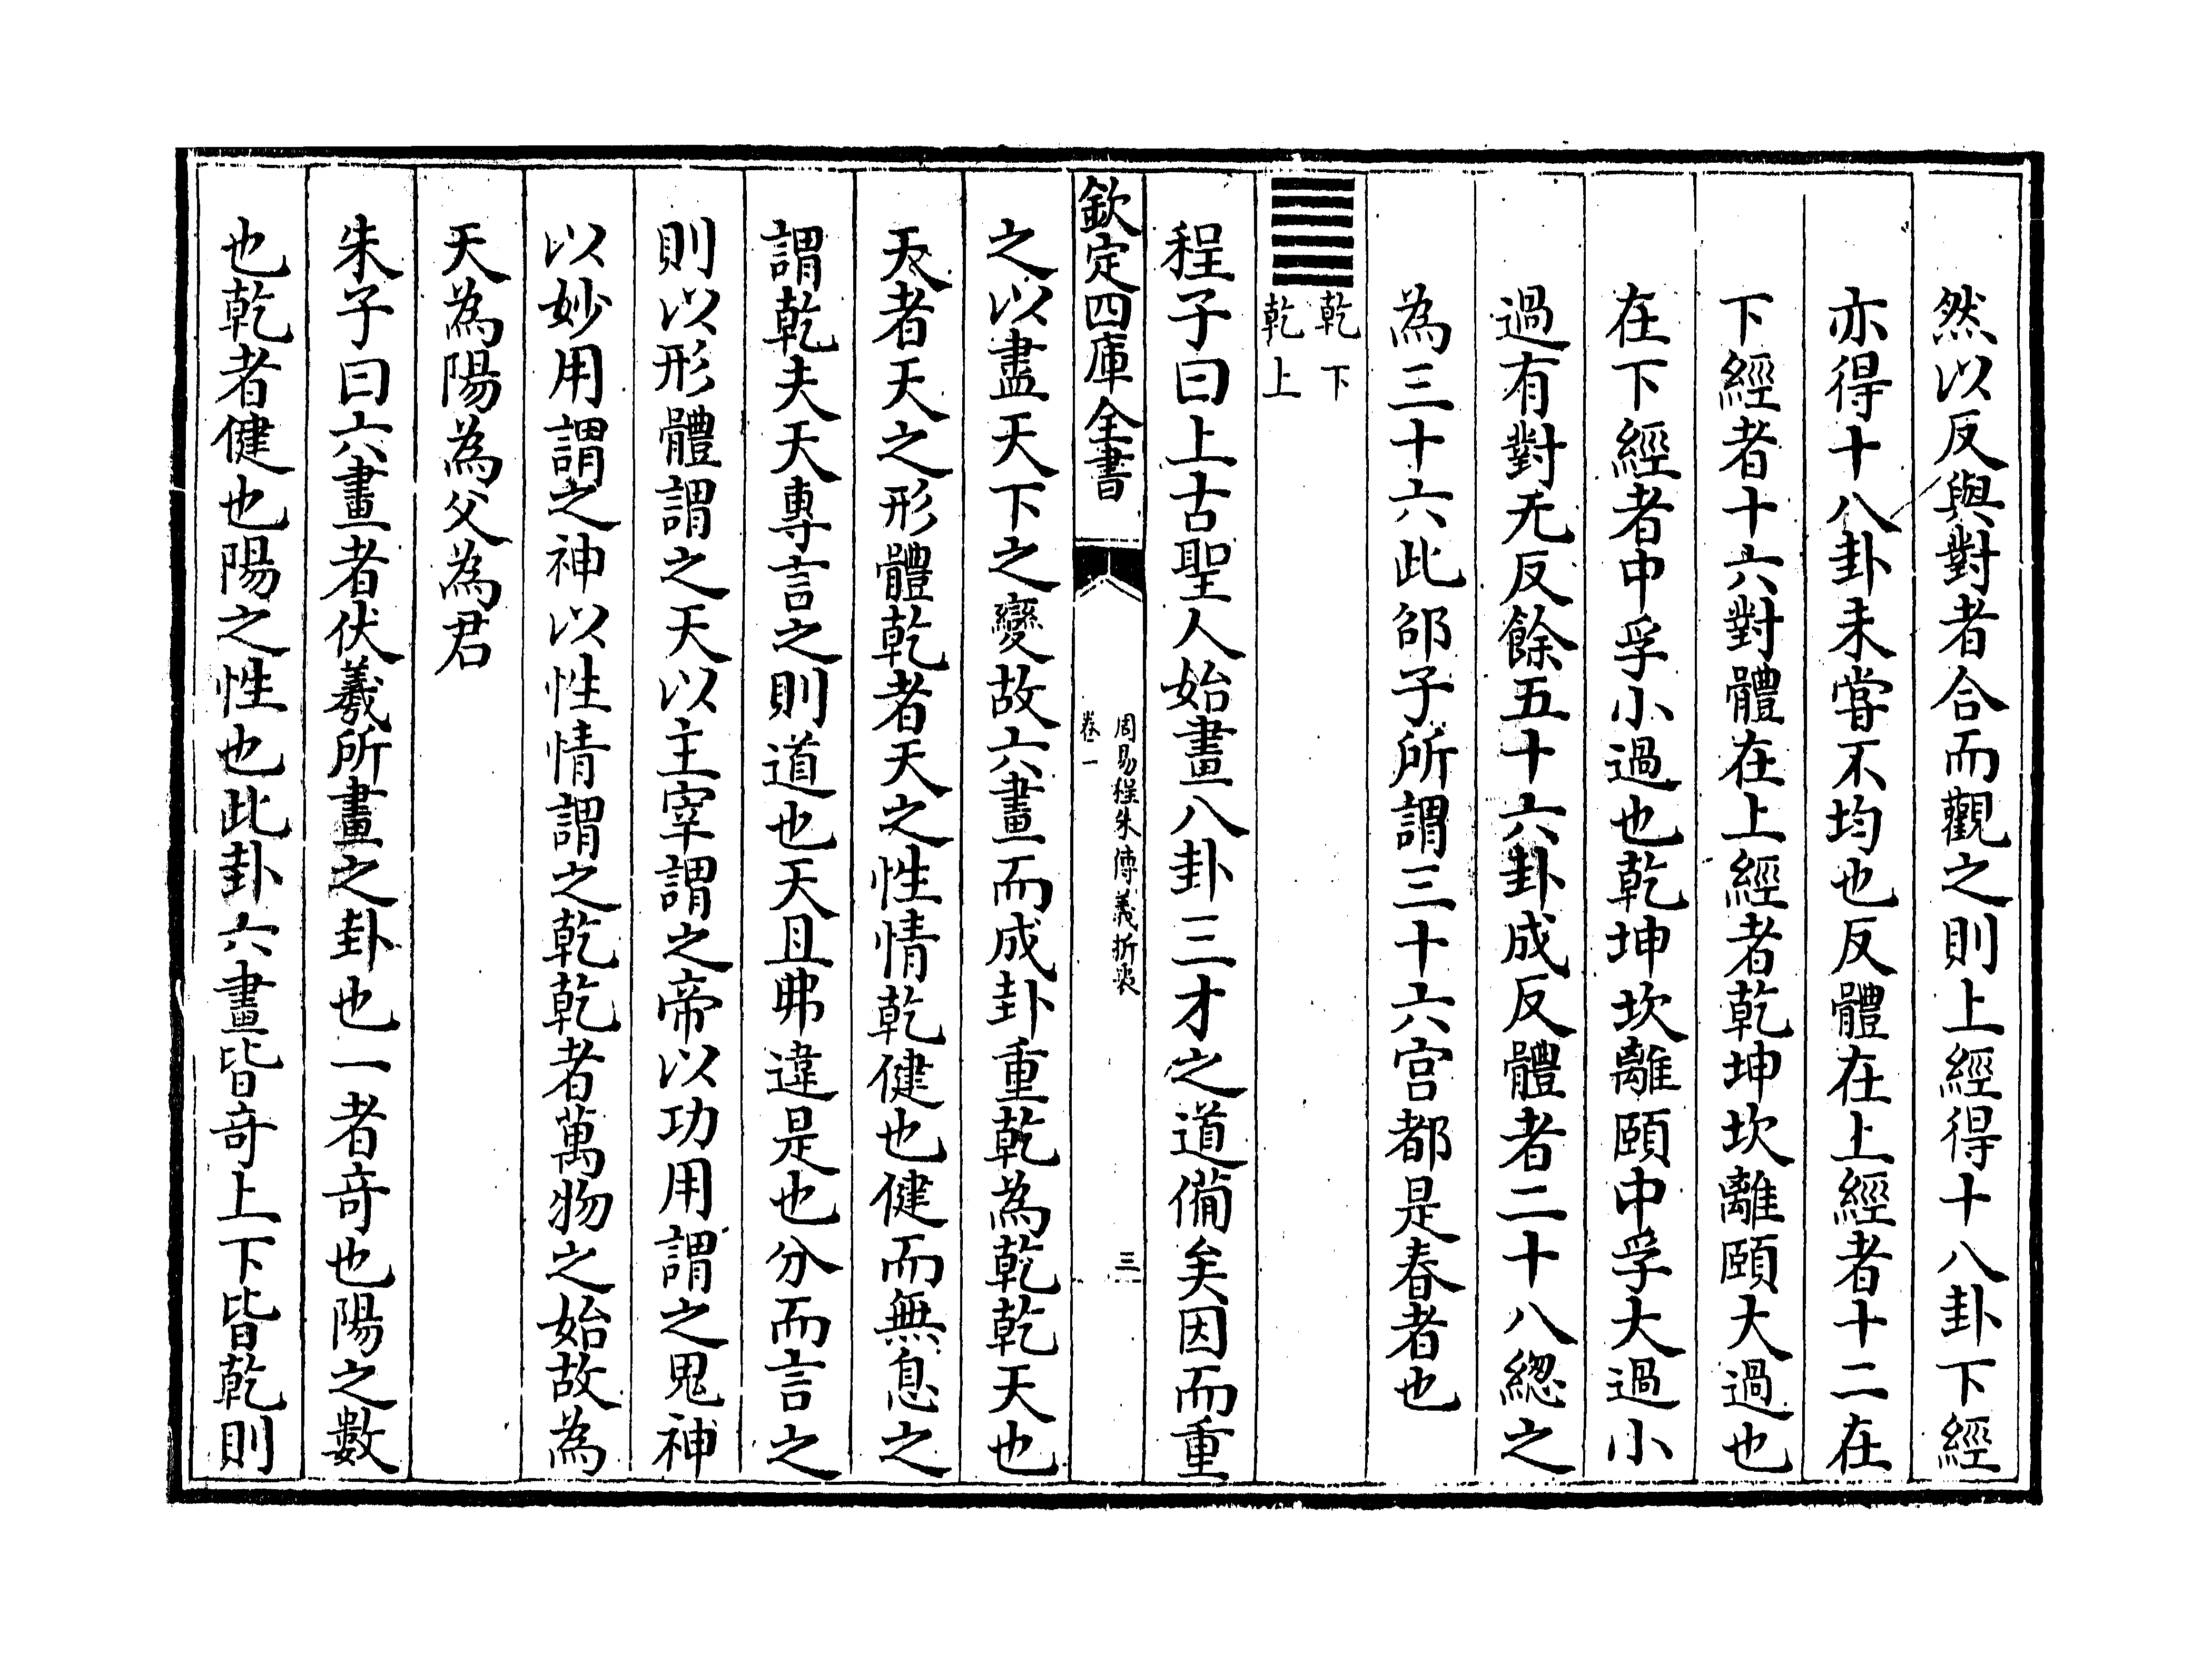 然以反與對者合而觀之則上經得十八卦下經
亦得十八卦未嘗不均也反體在上經者十二在
下經者十六對體在上經者乾坤坎離頤大過也
在下經者中孚小過也乾坤坎離頤中孚大過小
過有對无反餘五十六卦成反體者二十八緫之
為三十六此邵子所謂三十六宫都是春者也
䷀
乾下
乾上
程子曰上古聖人始畫八卦三才之道備矣因而重
欽定四庫全書
周易程朱傳義折衷
卷一
三
之以盡天下之變故六畫而成卦重乾為乾乾天也
天者天之形體乾者天之性情乾健也健而無息之
謂乾夫天專言之則道也天且弗違是也分而言之
則以形體謂之天以主宰謂之帝以功用謂之鬼神
以妙用謂之神以性情謂之乾乾者萬物之始故為
天為陽為父為君
朱子曰六畫者伏羲所畫之卦也一者竒也陽之數
也乾者健也陽之性也此卦六畫皆竒上下皆乾則